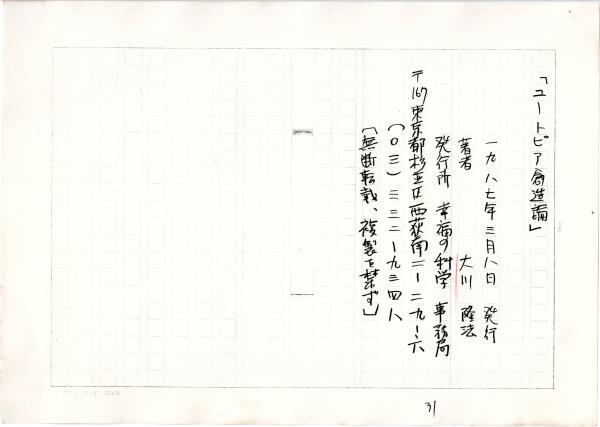 「ユートピア創造論」
一九八七年三月八日 発行
著者 大川 隆法
発行所 幸福の科学 事務局
〒167 東京都杉並区西荻南二ー二九ー六
（〇三）三三二ー九三四八
［無断転載、複製を禁ず］
31